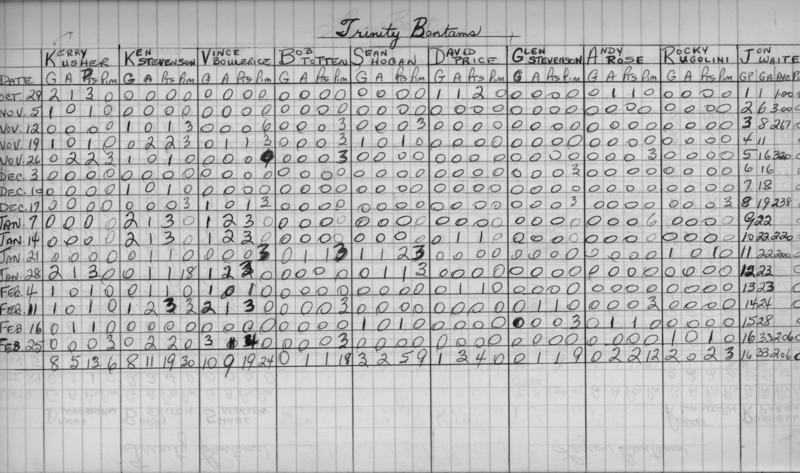 Trinity Bantams
KERRY KUSHER KEN STEVENSON VINCE BOULERICE BOB TOTTEN SEAN HOGAN DAVID PRICE GLEN STEVENSON ANDY ROSE ROCKY RUGOLINI JON WAITE
DATE G A Pts Pim G A Pts Pim G A Pts Pim G A Pts Pim G A Pts Pim G A Pts Pim G A Pts Pim G A Pts Pim G A Pts Pim GP GA AVE
OCT 29 2 1 3 0 0 0 0 0 0 0 0 0 0 0 0 0 0 0 0 0 1 1 2 0 0 0 0 0 0 1 1 0 0 0 0 0 1 1 1.00
NOV. 5 1 0 1 0 0 0 0 0 0 0 0 0 0 0 0 0 0 0 0 0 0 0 0 0 0 0 0 0 0 0 0 0 0 0 0 0 2 6 3.00
NOV. 12 0 0 0 0 1 0 1 3 0 0 0 6 0 0 0 3 0 0 0 3 0 0 0 0 0 0 0 0 0 0 0 0 0 0 0 0 3 8 2.67
NOV. 19 1 0 1 0 0 2 2 3 0 1 1 3 0 0 0 3 1 0 1 0 0 0 0 0 0 0 0 0 0 0 0 0 0 0 0 0 4 11
NOV. 26 0 2 2 3 1 0 1 0 0 0 0 0 0 0 3 0 0 0 0 0 0 0 0 0 0 0 0 0 0 0 3 0 0 0 0 5 16 3.20
DEC. 3 0 0 0 0 0 0 0 0 0 0 0 0 0 0 0 0 0 0 0 0 0 0 0 0 0 0 0 3 0 0 0 0 0 0 0 0 6 16
DEC. 10 0 0 0 0 1 0 1 0 0 0 0 0 0 0 0 0 0 0 0 0 0 0 0 0 0 0 0 0 0 0 0 0 0 0 0 0 7 18
DEC. 17 0 0 0 0 0 0 0 3 1 0 1 3 0 0 0 0 0 0 0 0 0 0 0 0 0 0 0 3 0 0 0 0 0 0 0 3 8 19 2.38
JAN. 7 0 0 0 0 2 1 3 0 1 2 3 0 0 0 0 0 0 0 0 0 0 0 0 0 0 0 0 0 0 0 0 6 0 0 0 0 9 22
JAN. 14 0 0 0 0 2 1 3 0 1 2 3 0 0 0 0 0 0 0 0 0 0 1 1 0 0 0 0 0 0 0 0 0 0 0 0 0 10 22 2.20
JAN. 21 0 0 0 0 0 1 1 0 0 0 0 3 0 1 1 3 1 1 2 3 0 0 0 0 0 0 0 0 0 0 0 0 1 0 1 0 11 22 2.00
JAN. 28 2 1 3 0 0 1 1 18 1 2 3 0 0 0 0 0 1 1 3 0 0 0 0 0 0 0 0 0 0 0 0 0 0 0 0 12 23
FEB. 4 1 0 1 0 0 1 1 0 1 0 1 0 0 0 0 0 0 0 0 0 0 1 1 0 0 0 0 0 0 0 0 0 0 0 0 0 13 23
FEB. 11 1 0 1 0 1 2 3 3 2 1 3 0 0 0 0 3 0 0 0 0 0 0 0 0 0 1 1 0 0 0 0 3 0 0 0 0 14 24
FEB 16 0 1 1 0 0 0 0 0 0 0 0 0 0 0 0 0 1 0 1 0 0 0 0 0 0 0 0 3 0 1 1 0 0 0 0 0 15 28
FEB. 25 0 0 0 3 0 2 2 0 3 4 0 0 0 0 3 0 0 0 0 0 0 0 0 0 0 0 0 0 0 0 0 1 0 1 0 16 33 2.06
8 5 13 6 8 11 19 30 10 9 19 24 0 1 1 18 3 2 5 9 1 3 4 0 0 1 1 9 0 2 2 12 2 0 2 3 16 33 2.06